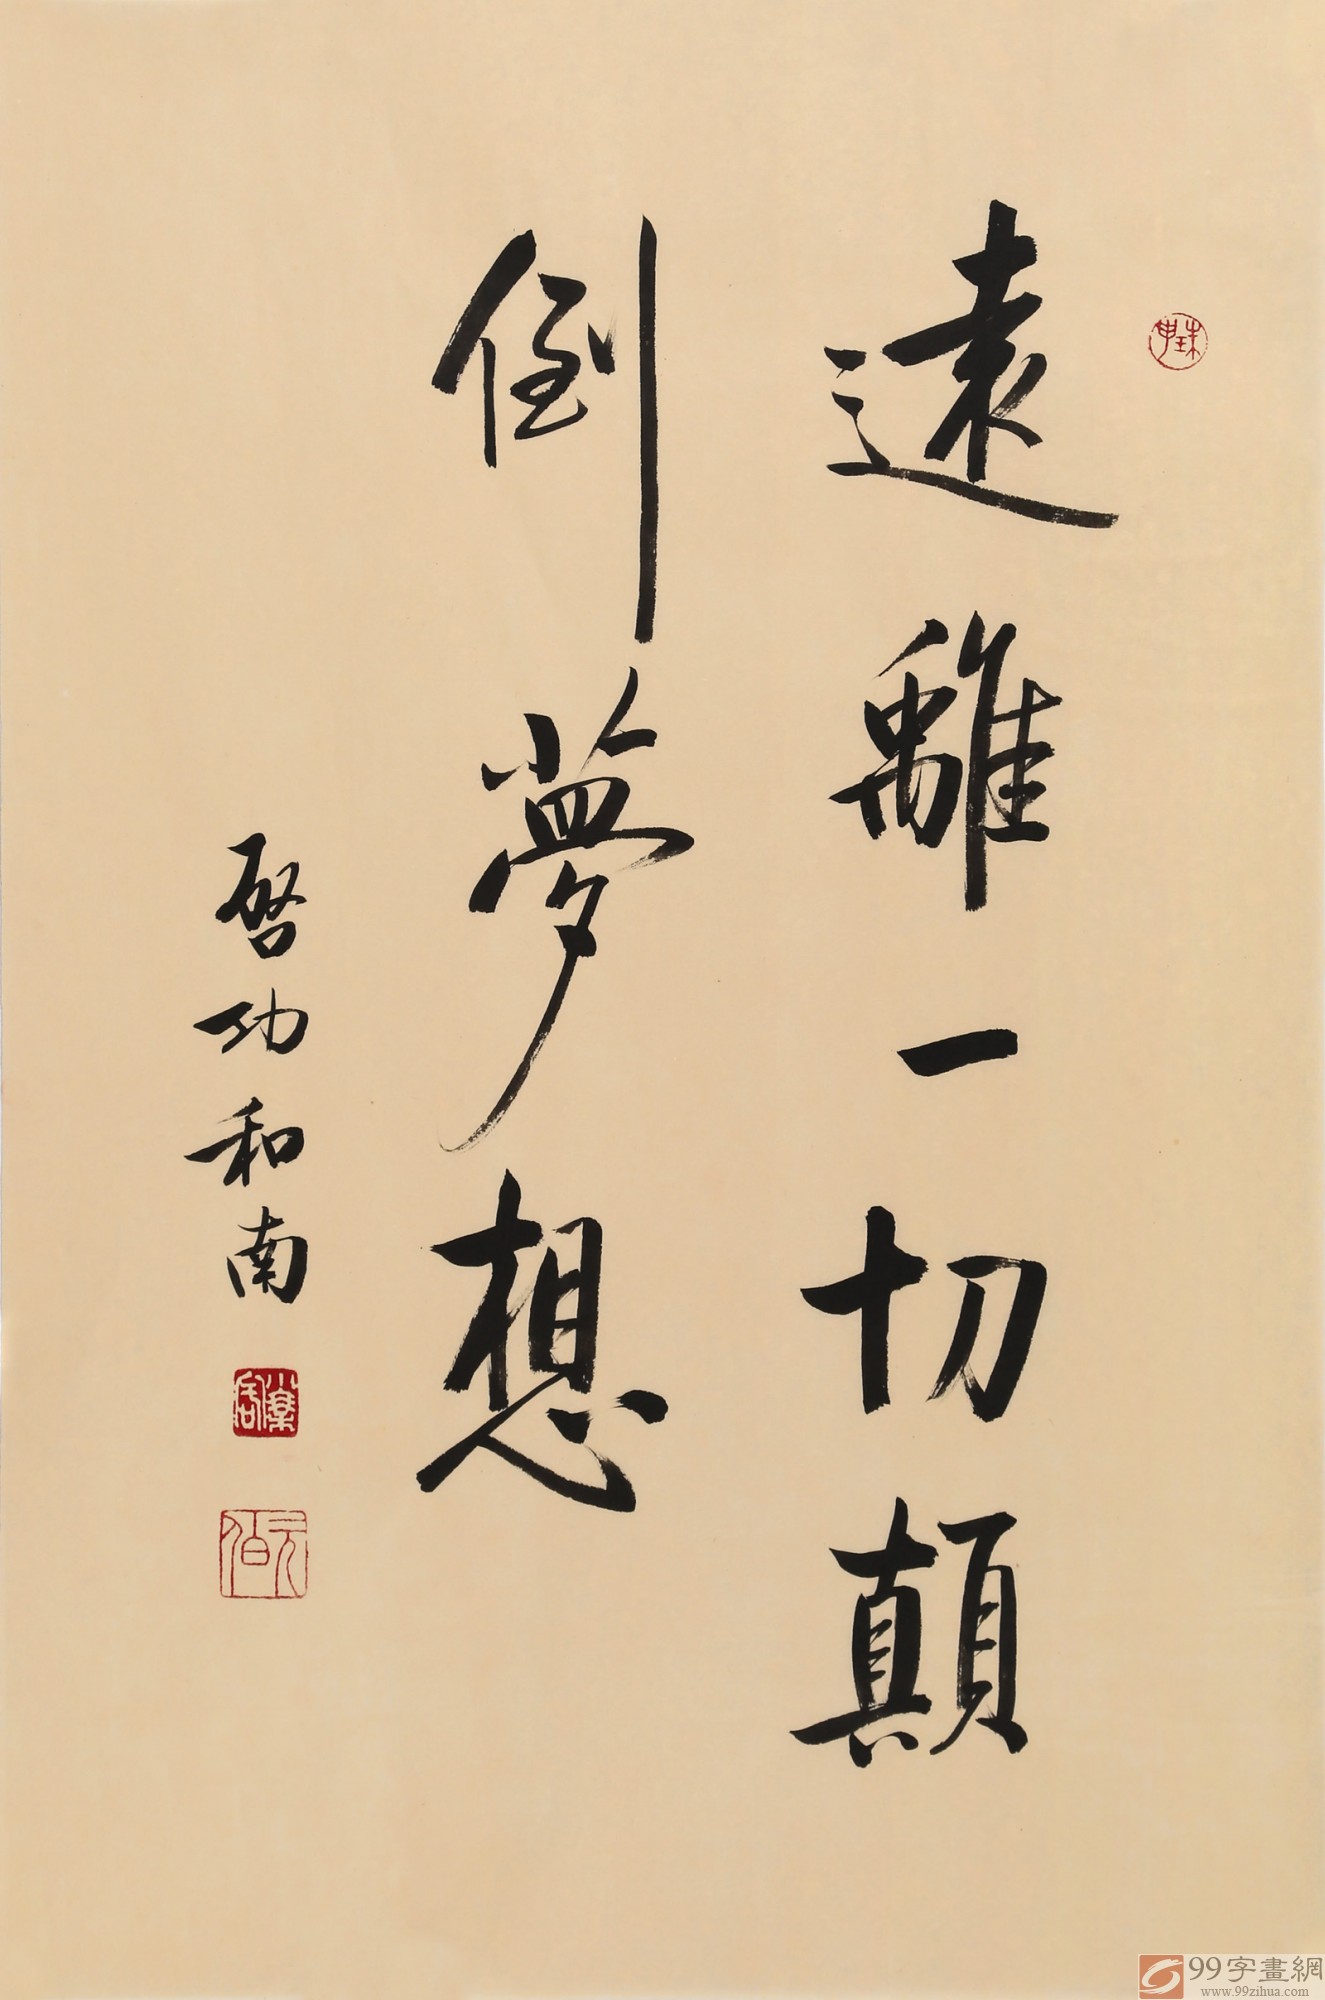 遠離一切顛
倒夢想
啓功和南
元伯
99字畫網
www.99zihua.com